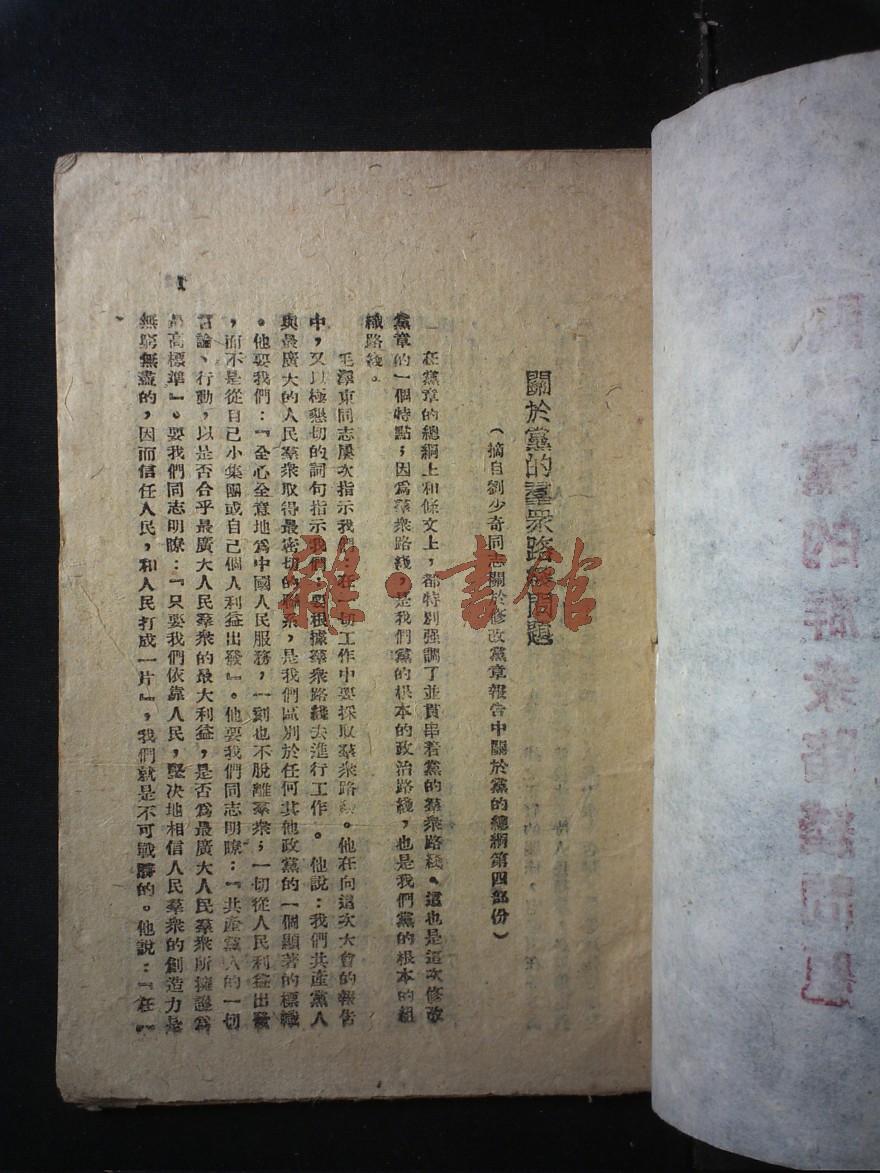 關於黨的羣衆路綫問題
（摘自劉少奇同志關於修改黨章報告中關於黨的總綱第四部份）
在黨章的總綱上和條文上，都特別强調了並貫串着黨的羣衆路綫。這也是這次修改
黨章的一個特點；因爲羣衆路綫，是我們黨的根本的政治路綫，也是我們黨的根本的組
織路綫。
毛澤東同志屢次指示我們：在一切工作中要採取羣衆路綫。他在向這次大會的報告
中，又以極懇切的詞句指示我們：要根據羣衆路綫去進行工作。他說：我們共產黨人
與最廣大的人民羣衆取得最密切的聯系，是我們區別於任何其他政黨的一個顯著的標幟
。他要我們：『全心全意地爲中國人民服務，一刻也不脫離羣衆；一切從人民利益出發
，而不是從自己小集團或自己個人利益出發』。他要我們同志明瞭：『共產黨人的一切
言論、行動，以是否合乎最廣大人民羣衆的最大利益，是否爲最廣大人民羣衆所擁護爲
最高標準』。要我們同志明瞭：『只要我們依靠人民，堅决地相信人民羣衆的創造力是
無窮無盡的，因而信任人民，和人民打成一片』，我們就是不可戰勝的。他說：『在
1
雜·書館
黨的群衆路綫問題